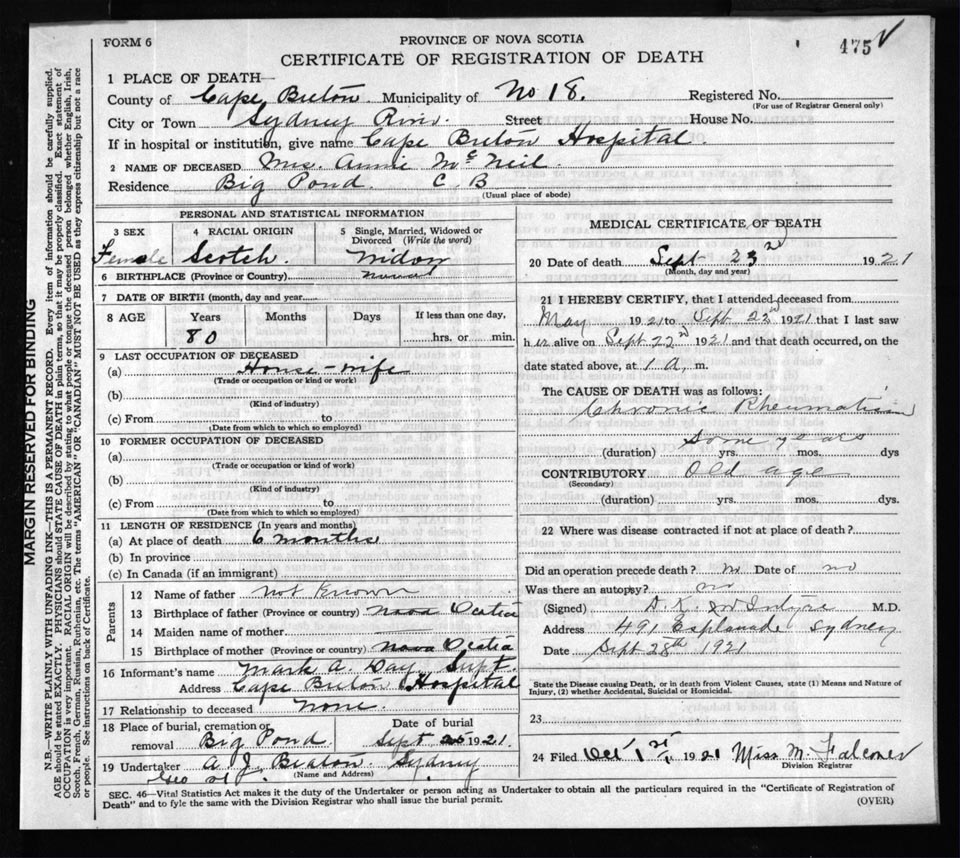 FORM 6
PROVINCE OF NOVA SCOTIA
475
CERTIFICATE OF REGISTRATION OF DEATH
1 PLACE OF DEATH—
County of Cape Breton. Municipality of No 18. Registered No.
(For use of Registrar General only)
City or Town Sydney River. Street House No.
If in hospital or institution, give name Cape Breton Hospital.
2 NAME OF DECEASED Mrs. Annie McNeil.
Residence Big Pond. C B
(Usual place of abode)
PERSONAL AND STATISTICAL INFORMATION
3 SEX 4 RACIAL ORIGIN 5 Single, Married, Widowed or Divorced (Write the word)
Female Scotch. Widow
6 BIRTHPLACE (Province or Country)
7 DATE OF BIRTH (month, day and year
8 AGE Years Months Days If less than one day,
80 hrs. or min.
9 LAST OCCUPATION OF DECEASED
(a) House-wife
(Trade or occupation or kind or work)
(b)
(Kind of industry)
(c) From to
(Date from which to which so employed)
10 FORMER OCCUPATION OF DECEASED
(a)
(Trade or occupation or kind of work)
(b)
(Kind of industry)
(c) From to
(Date from which to which so employed)
11 LENGTH OF RESIDENCE (In years and months)
(a) At place of death 6 months
(b) In province
(c) In Canada (if an immigrant)
Parents
12 Name of father not known
13 Birthplace of father (Province or country) Nova Scotia
14 Maiden name of mother
15 Birthplace of mother (Province or country) Nova Scotia
16 Informant's name Mark A. Day Supt.
Address Cape Breton Hospital
17 Relationship to deceased none.
18 Place of burial, cremation or removal Big Pond Date of burial Sept 25 1921.
19 Undertaker A. J. Beaton. Sydney
(Name and Address)
Geo St
MEDICAL CERTIFICATE OF DEATH
20 Date of death Sept 23rd 1921
(Month, day and year)
21 I HEREBY CERTIFY, that I attended deceased from
May 1921 to Sept 22nd 1921 that I last saw
her alive on Sept 22nd 1921 and that death occurred, on the
date stated above, at 1 A. m.
The CAUSE OF DEATH was as follows:
Chronic Rheumatism
some years
(duration) yrs. mos. dys
CONTRIBUTORY Old age
(Secondary)
(duration) yrs. mos. dys.
22 Where was disease contracted if not at place of death?
Did an operation precede death? no Date of no
Was there an autopsy? no
(Signed) D. K. McIntyre M.D.
Address 491 Esplanade Sydney
Date Sept 28th 1921
State the Disease causing Death, or in death from Violent Causes, state (1) Means and Nature of
Injury, (2) whether Accidental, Suicidal or Homicidal.
23
24 Filed Oct 1st, 1921 Miss M. Falconer
Division Registrar
SEC. 46—Vital Statistics Act makes it the duty of the Undertaker or person acting as Undertaker to obtain all the particulars required in the "Certificate of Registration of
Death" and to fyle the same with the Division Registrar who shall issue the burial permit.
(OVER)
MARGIN RESERVED FOR BINDING
N.B.—WRITE PLAINLY WITH UNFADING INK—THIS IS A PERMANENT RECORD. Every item of information should be carefully supplied.
AGE should be stated EXACTLY. PHYSICIANS should STATE CAUSE OF DEATH in plain terms, so that it may be properly classified. Exact statement of
OCCUPATION is very important. RACIAL ORIGIN will be described by stating to what people or tongue the deceased person belonged whether English, Irish,
Scotch, French, German, Russian, Ruthenian, etc. The terms "AMERICAN" OR "CANADIAN" MUST NOT BE USED as they express citizenship but not a race
or people. See instructions on back of Certificate.